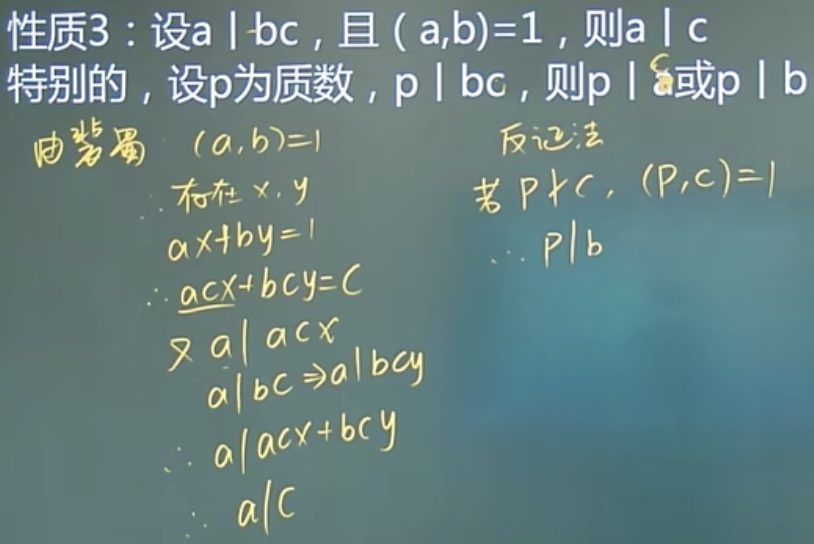 性质3：设a｜bc，且（a,b)=1，则a｜c
特别的，设p为质数，p｜bc，则p｜c或p｜b
由裴蜀 (a,b)=1
∴存在x,y
ax+by=1
∴acx+bcy=c
又a|acx
a|bc⇒a|bcy
∴a|acx+bcy
∴a|c
反证法
若p∤c，(p,c)=1
∴p|b